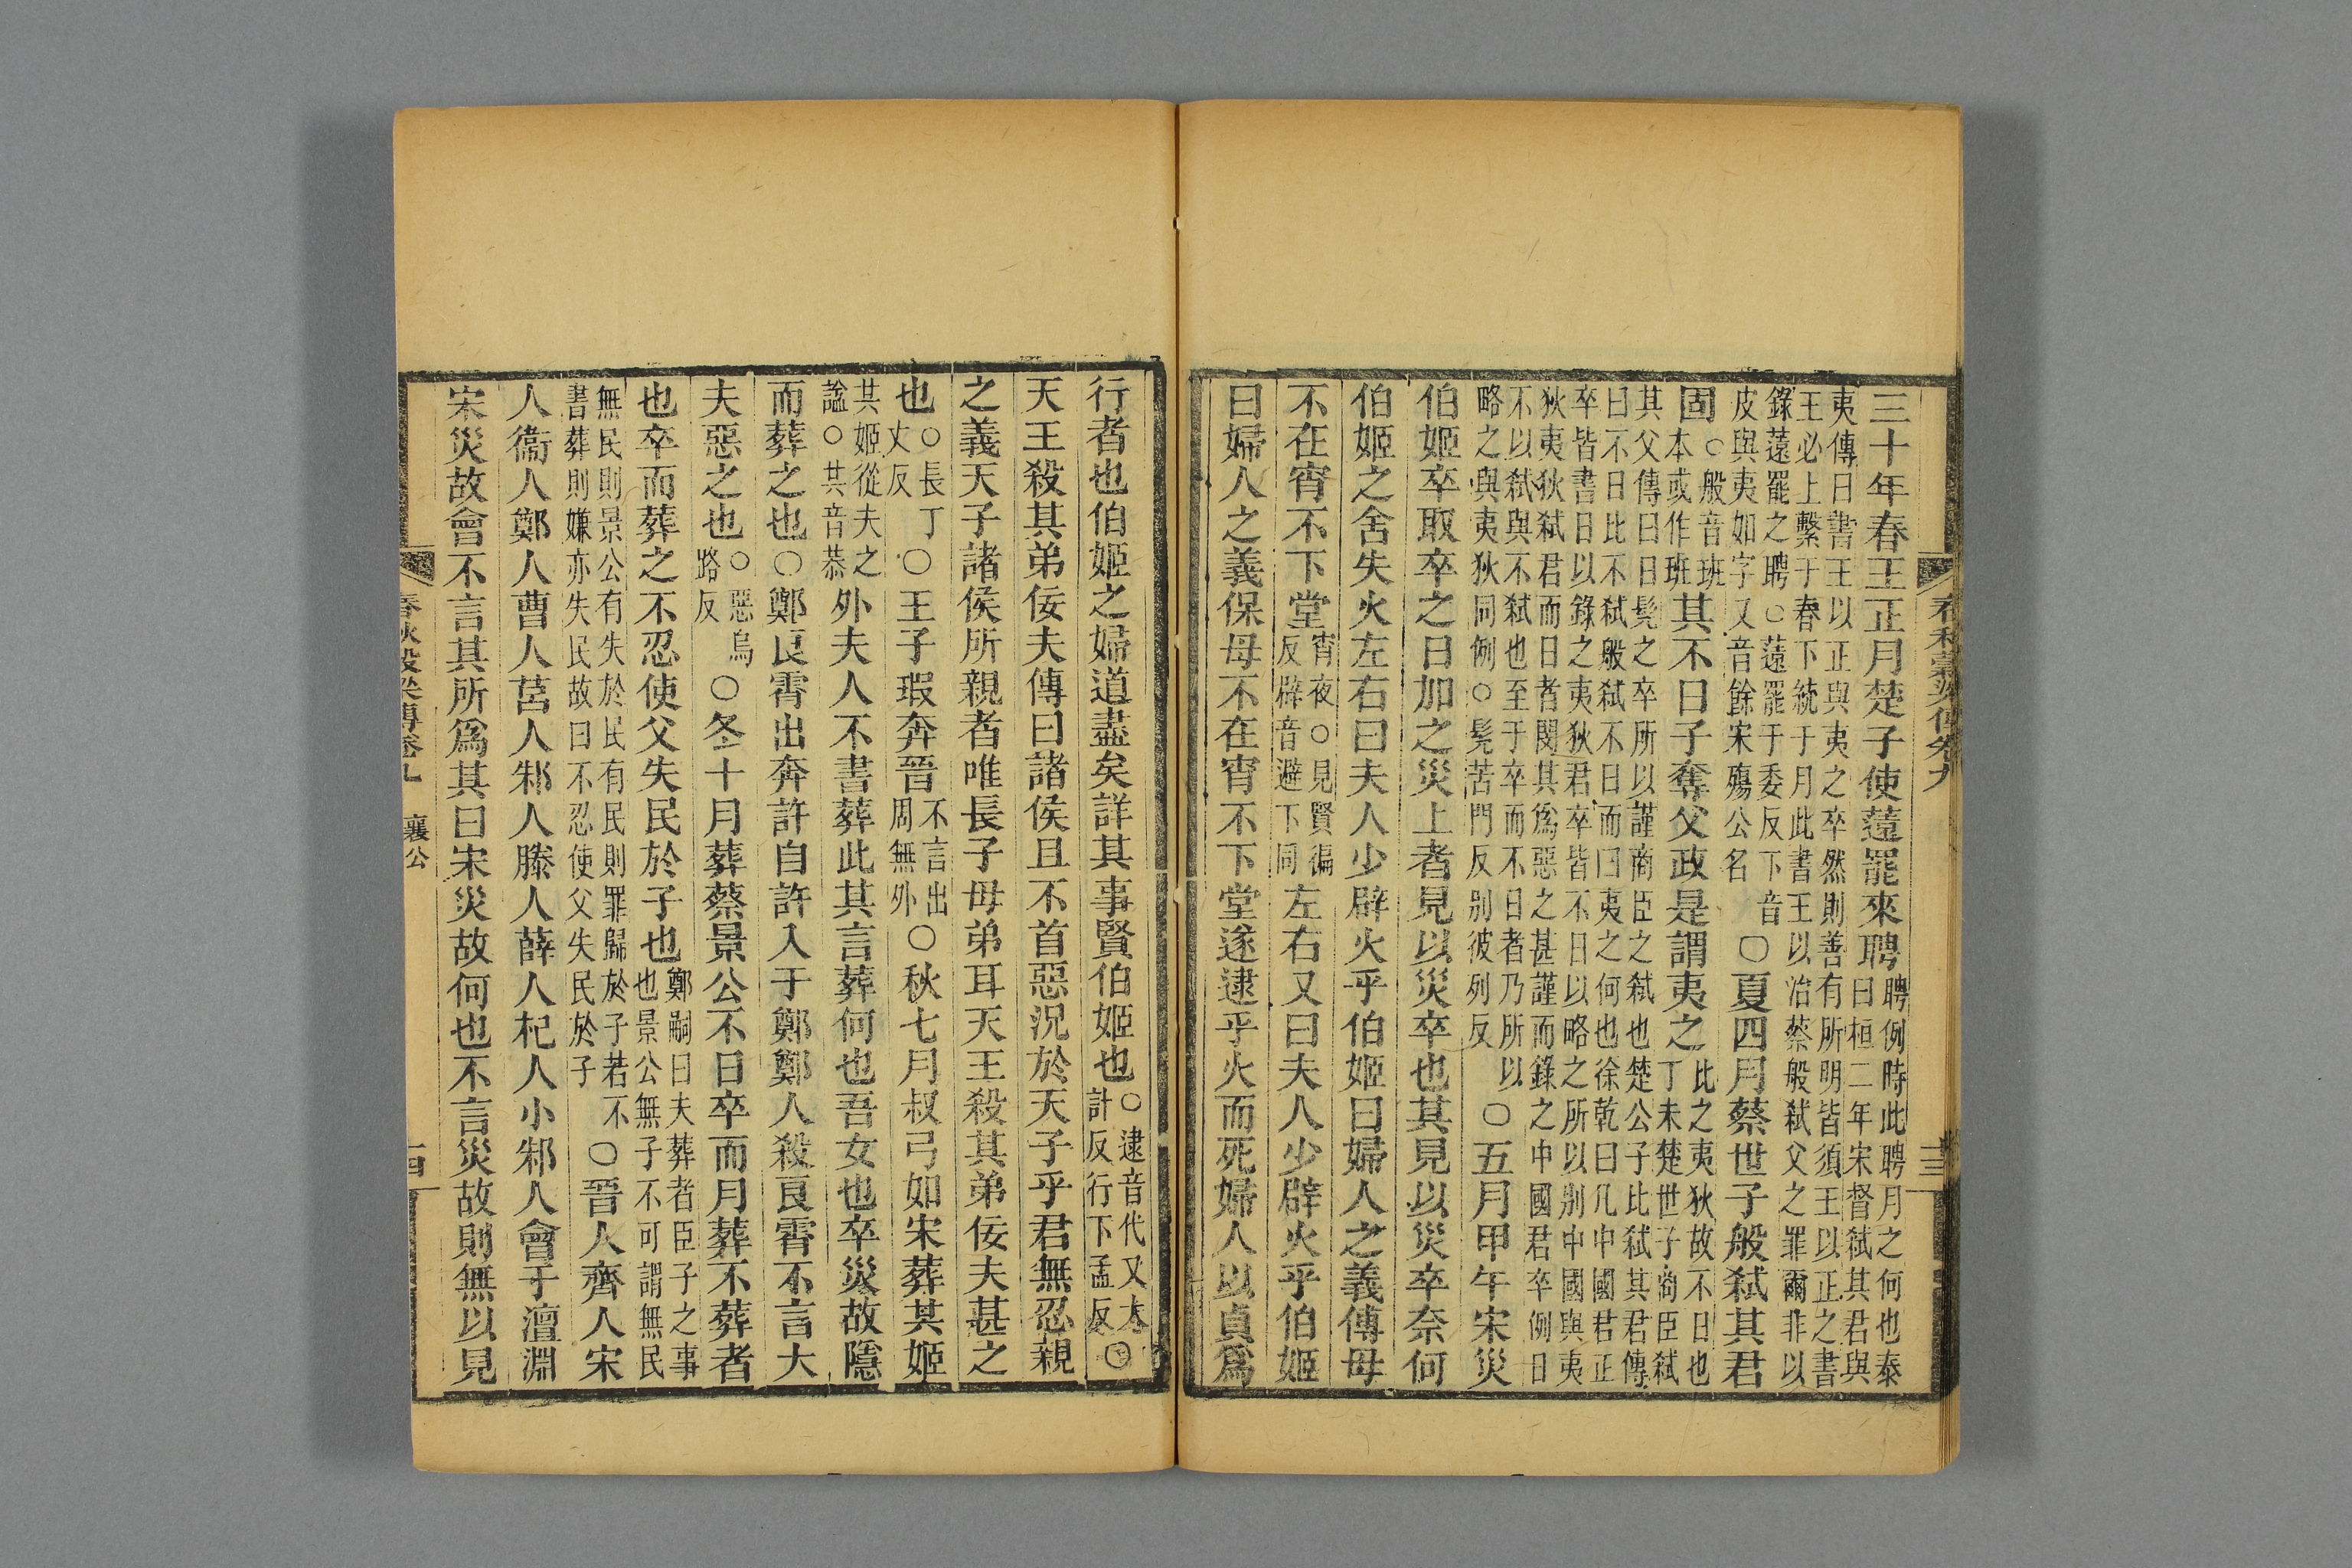 春秋穀梁傳卷九
三十年春王正月楚子使薳罷來聘聘例時此聘月之何也泰曰桓二年宋督弒其君與
夷傳曰書王以正與夷之卒然則善有所明皆須王以正之書王必上繫于春下統于月此書王以治蔡般弒父之罪爾非以
錄薳罷之聘○薳罷于委反下音皮與夷如字又音餘宋殤公名○夏四月蔡世子般弒其君
固○般音班本或作班其不日子奪父政是謂夷之比之夷狄故不日也丁未楚世子商臣弒
其父傳曰日髡之卒所以謹商臣之弒也楚公子比弒其君傳曰不日比不弒般弒不日而曰夷之何也徐乾曰凡中國君正
卒皆書日以錄之夷狄君卒皆不日以略之所以別中國與夷狄夷狄弒君而日者閔其為惡之甚謹而錄之中國君卒例日
不以弒與不弒也至于卒而不日者乃所以略之與夷狄同例○髡苦門反別彼列反○五月甲午宋災
伯姬卒取卒之日加之災上者見以災卒也其見以災卒奈何
伯姬之舍失火左右曰夫人少辟火乎伯姬曰婦人之義傅母
不在宵不下堂宵夜○見賢徧反辟音避下同左右又曰夫人少辟火乎伯姬
曰婦人之義保母不在宵不下堂遂逮乎火而死婦人以貞爲
行者也伯姬之婦道盡矣詳其事賢伯姬也○逮音代又大計反行下孟反○
天王殺其弟佞夫傳曰諸侯且不首惡況於天子乎君無忍親
之義天子諸侯所親者唯長子母弟耳天王殺其弟佞夫甚之
也○長丁丈反○王子瑕奔晉不言出周無外○秋七月叔弓如宋葬其姬
其姬從夫之謚○其音恭外夫人不書葬此其言葬何也吾女也卒災故隱
而葬之也○鄭良霄出奔許自許入于鄭鄭人殺良霄不言大
夫惡之也○惡烏路反○冬十月葬蔡景公不日卒而月葬不葬者
也卒而葬之不忍使父失民於子也鄭嗣曰夫葬者臣子之事也景公無子不可謂無民
無民則景公有失於民有民則罪歸於子若不書葬則嫌亦失民故曰不忍使父失民於子○晉人齊人宋
人衞人鄭人曹人莒人邾人滕人薛人杞人小邾人會于澶淵
宋災故會不言其所爲其曰宋災故何也不言災故則無以見
春秋穀梁傳卷九 襄公 十四